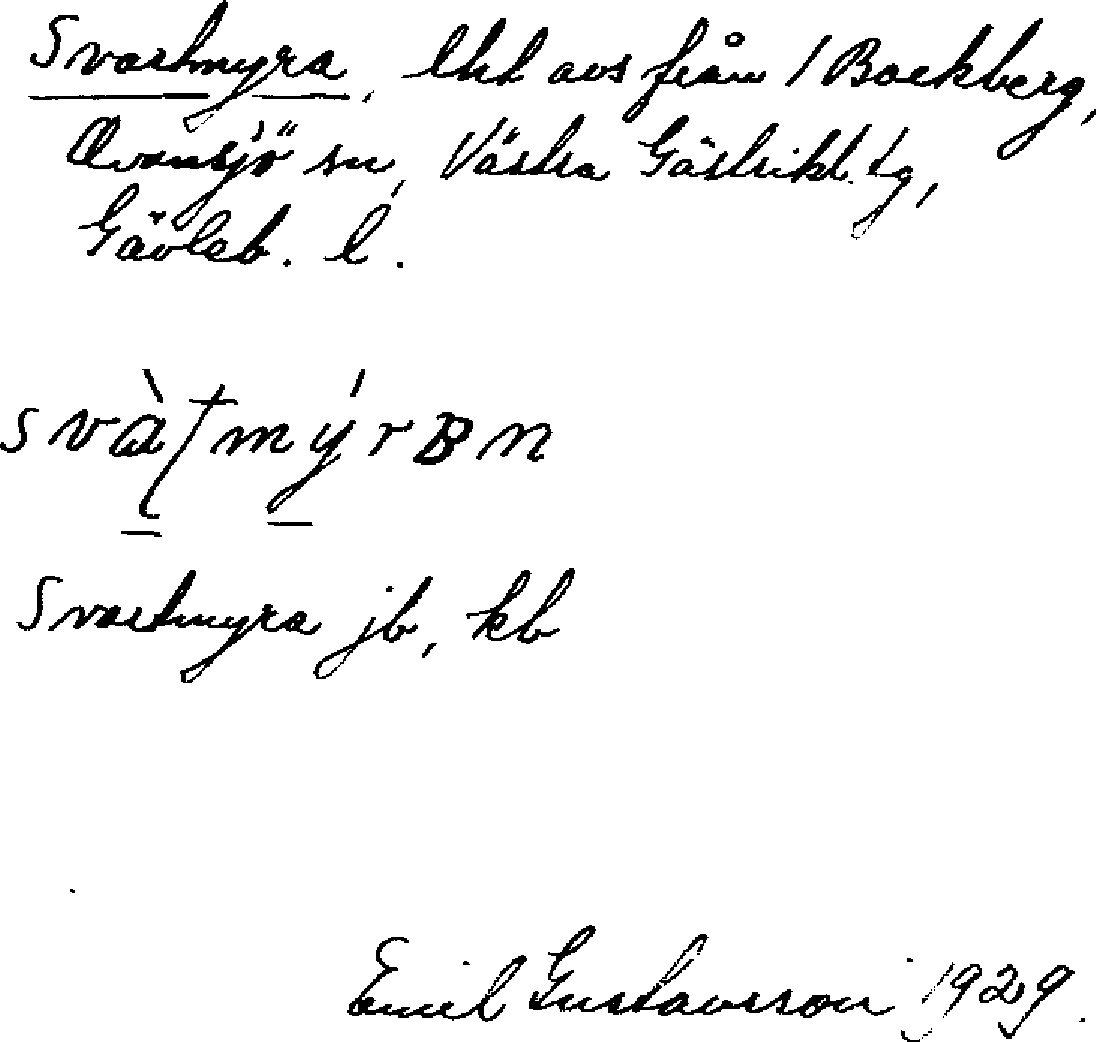 Svartmyra, lht avs från 1 Backberg,
Ovansjö sn, Västra Gästrikl. tg,
Gävleb. l.
svàʈmýrʙn
Svartmyra jb, kb
Emil Gustavsson 1929.